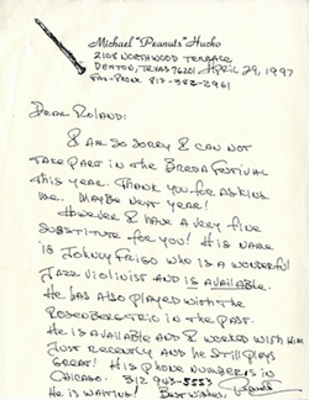 Michael "Peanuts" Hucko
2108 NORTHWOOD TERRACE
DENTON, TEXAS 76201 APRIL 29, 1997
FAX-PHONE 817-382-2961
DEAR ROLAND:
I AM SO SORRY I CAN NOT
TAKE PART IN THE BREDA FESTIVAL
THIS YEAR. THANK YOU FOR ASKING
ME. MAYBE NEXT YEAR!
HOWEVER I HAVE A VERY FINE
SUBSTITUTE FOR YOU! HIS NAME
IS JOHNNY FRIGO WHO IS A WONDERFUL
JAZZ VIOLINIST AND IS AVAILABLE.
HE HAS ALSO PLAYED WITH THE
ROSENBERG TRIO IN THE PAST.
HE IS AVAILABLE AND I WORKED WITH HIM
JUST RECENTLY AND HE STILL PLAYS
GREAT! HIS PHONE NUMBER IS IN
CHICAGO. 312 943-5553
HE IS WAITING! BEST WISHES, Peanuts